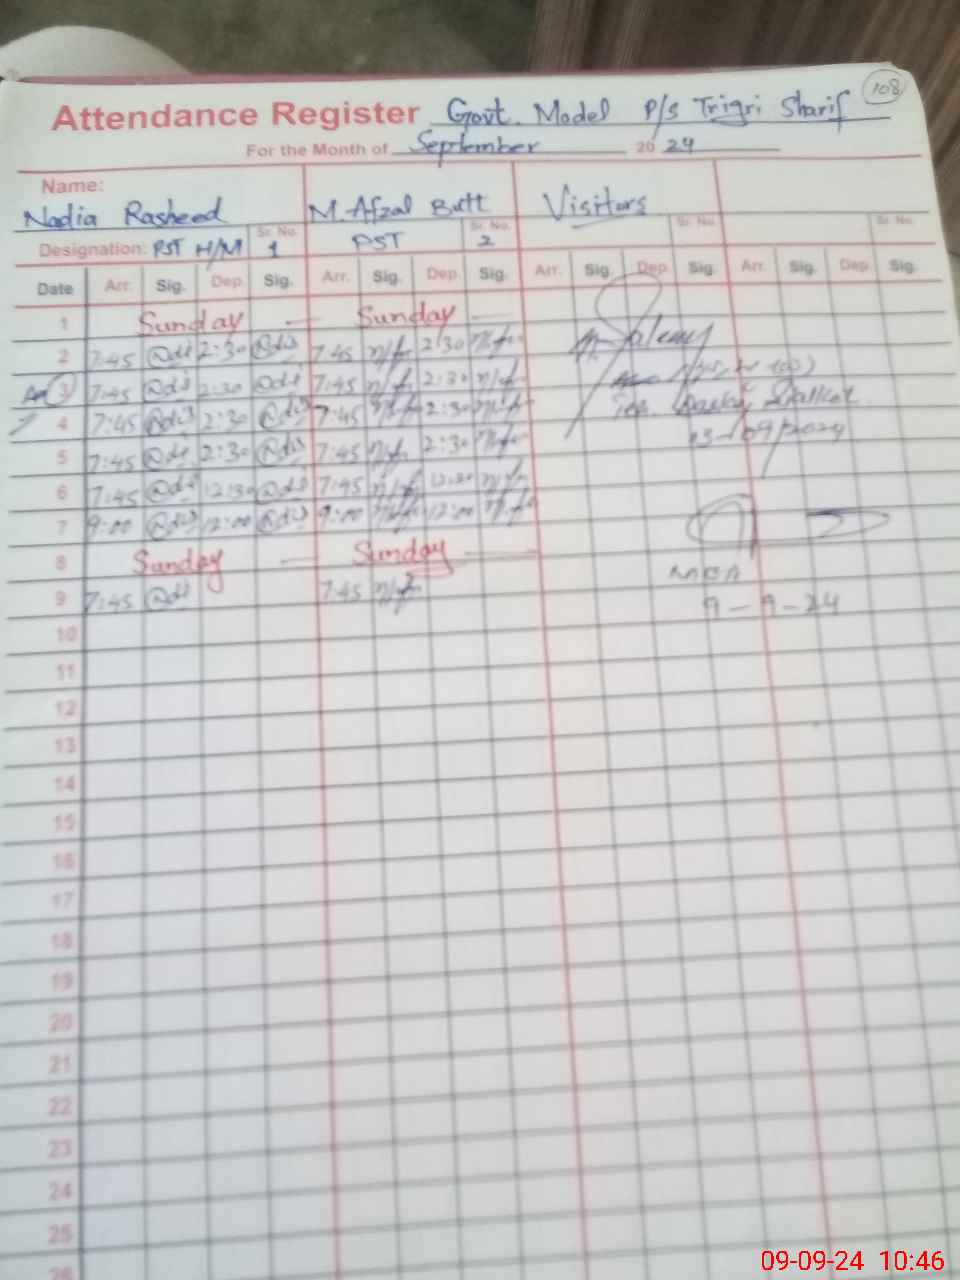 108
Attendance Register Govt. Model P/S Trigri Sharif
For the Month of September 20 24
Name:
Nadia Rasheed M. Afzal Butt Visitors
Sr. No. Sr. No. Sr. No. Sr. No.
Designation: PST H/M 1 PST 2
Date Arr. Sig. Dep. Sig. Arr. Sig. Dep. Sig. Arr. Sig. Dep. Sig. Arr. Sig. Dep. Sig.
1 Sunday Sunday
2 7:45 2:30 7:45 2:30
3 7:45 2:30 7:45 2:30
4 7:45 2:30 7:45 2:30
03-09/2024
5 7:45 2:30 7:45 2:30
6 7:45 12:30 7:45 12:30
7 9:00 12:00 9:00 12:00
8 Sunday Sunday
MEA
9 7:45 7:45
9-9-24
10
11
12
13
14
15
16
17
18
19
20
21
22
23
24
25
26
09-09-24 10:46